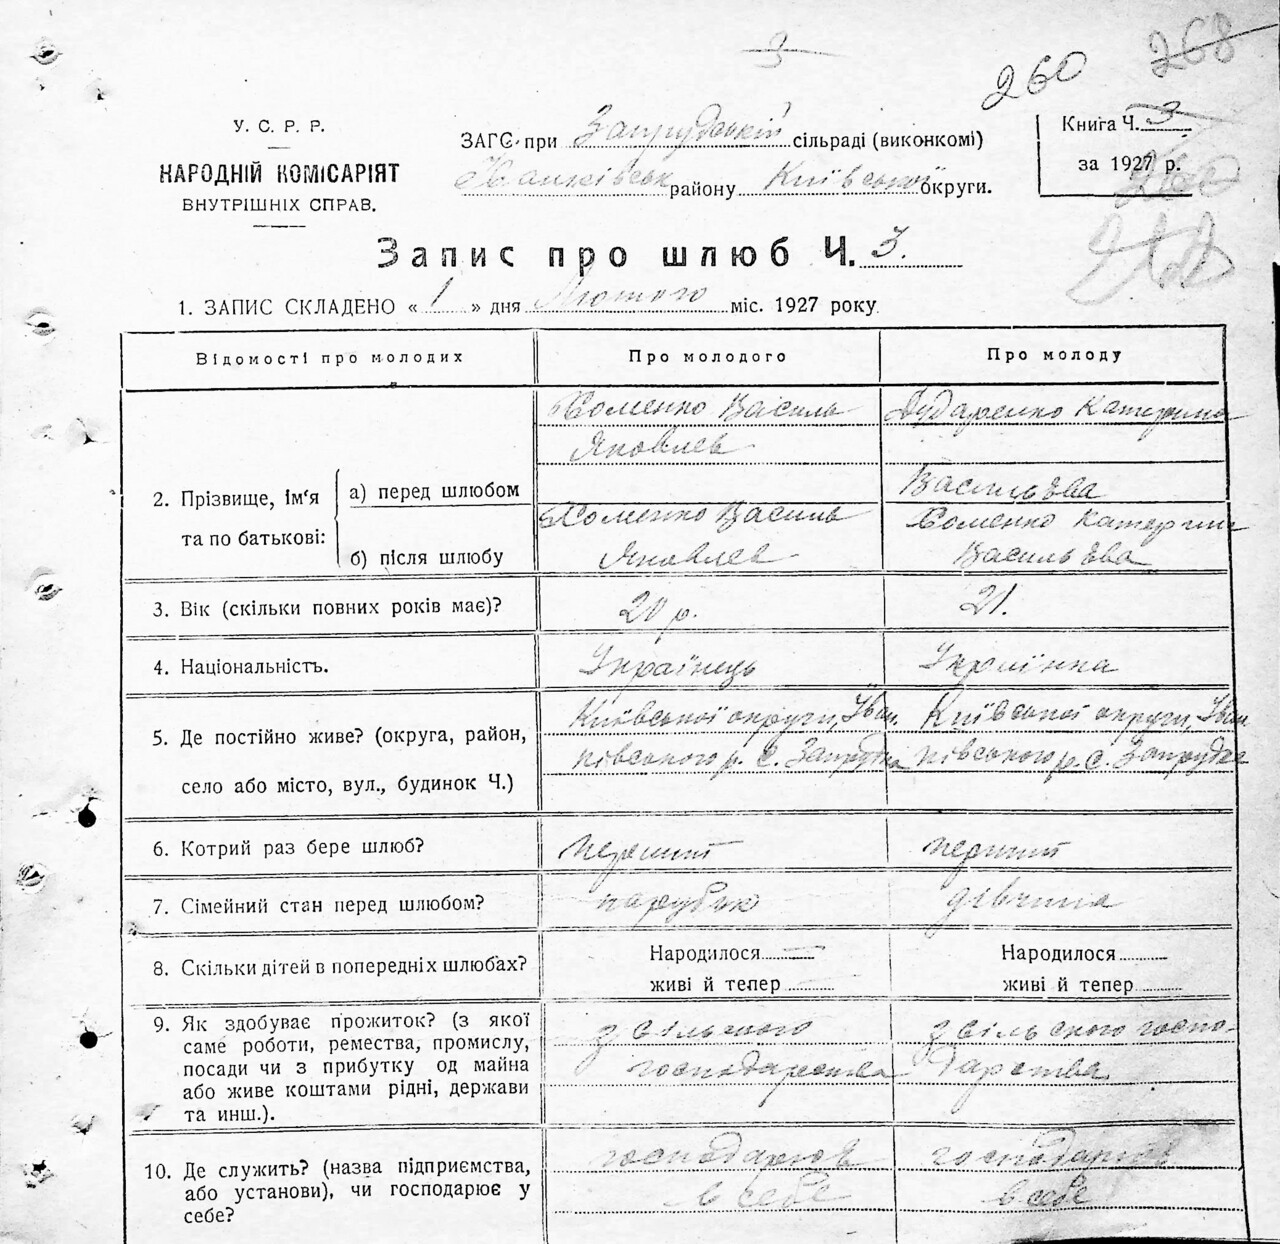 3
260 268
У. С. Р. Р.
НАРОДНІЙ КОМІСАРІЯТ
ВНУТРІШНІХ СПРАВ.
ЗАГС при Запрудській сільраді (виконкомі)
району Київської округи.
Книга Ч. 3
за 1927 р.
Запис про шлюб Ч. 3.
1. ЗАПИС СКЛАДЕНО « 1 » дня Лютого міс. 1927 року
Відомості про молодих Про молодого Про молоду
2. Прізвище, ім'я та по батькові:
а) перед шлюбом
Хоменко Василь
Яковлев
Дударенко Катерина
Васильєва
б) після шлюбу
Хоменко Василь
Яковлев
Хоменко Катерина
Васильєва
3. Вік (скільки повних років має)? 20 р. 21.
4. Національність. Українець Українка
5. Де постійно живе? (округа, район,
село або місто, вул., будинок Ч.)
Київської округи, Іван
ківського р. с. Запрудка
Київської округи, Іван
ківського р. с. Запрудка
6. Котрий раз бере шлюб? перший перший
7. Сімейний стан перед шлюбом? парубок дівчина
8. Скільки дітей в попередніх шлюбах?
Народилося
живі й тепер
Народилося
живі й тепер
9. Як здобуває прожиток? (з якої
саме роботи, ремества, промислу,
посади чи з прибутку од майна
або живе коштами рідні, держави
та инш.).
з сільського
господарства
з сільського госпо-
дарства
10. Де служить? (назва підприємства,
або установи), чи господарює у
себе?
господарює
в себе
господарює
в себе